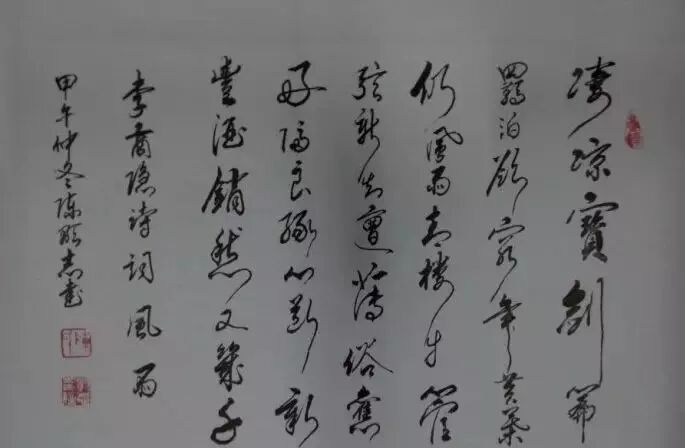 凄凉寶劍篇
羈泊欲窮年黄葉
仍風雨青樓自管
弦新知遭薄俗舊
好隔良緣心斷新
豐酒銷愁又幾千
李商隐诗词風雨
甲午仲冬陈志书